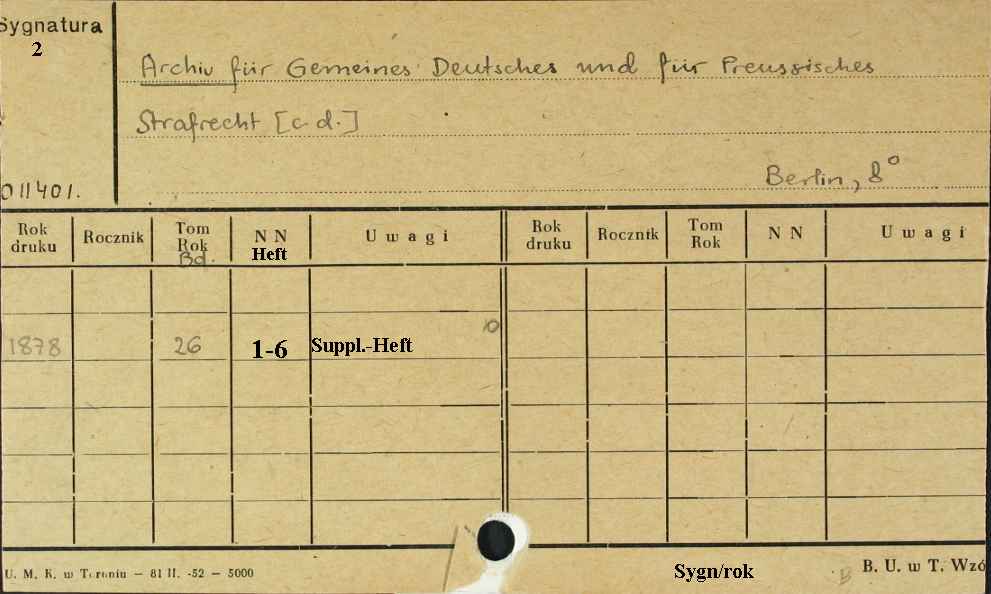 Sygnatura
2
Archiv für Gemeines Deutsches und für Preussisches
Strafrecht [c.d.]
Berlin, 8°
011401.
Rok druku Rocznik Tom Rok Bd. N N Heft Uwagi Rok druku Rocznik Tom Rok N N Uwagi
1878 26 1-6 Suppl.-Heft
U. M. K. w Toruniu — 81 II. -52 — 5000
Sygn/rok
B. U. w T. Wzó